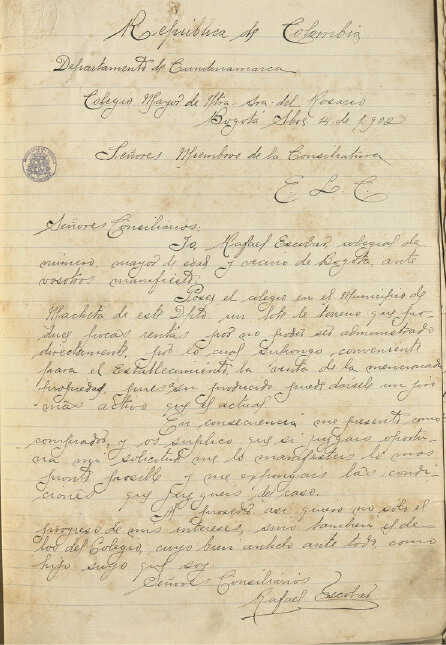 República de Colombia
Departamento de Cundinamarca
Colegio Mayor de Ntra. Sra. del Rosario
Bogotá 4 de 1902
Señores Miembros de la Consiliatura
E. L. C.
Señores Consiliarios:
Yo, Rafael Escobar, colegial de
número, mayor de edad y vecino de Bogotá, ante
vosotros manifiesto:
Posee el colegio en el Municipio de
Machetá de este Dpto. un lote de terreno que pro-
duce pocas rentas por no poder ser administrado
directamente, por lo cual supongo conveniente
para el Establecimiento la venta de la mencionada
propiedad, pues su producido puede dársele un giro
más activo que el actual.
En consecuencia me presento como
comprador, y os suplico que si juzgais oportu-
na mi solicitud me lo manifesteis lo mas
pronto posible y me expongais las condi-
ciones que del caso.
Al proceder así quiero no sólo el
progreso de mis intereses, sino tambien el de
los del Colegio, cuyo bien anhelo ante todo como
hijo suyo que soy.
Señores Consiliarios
Rafael Escobar